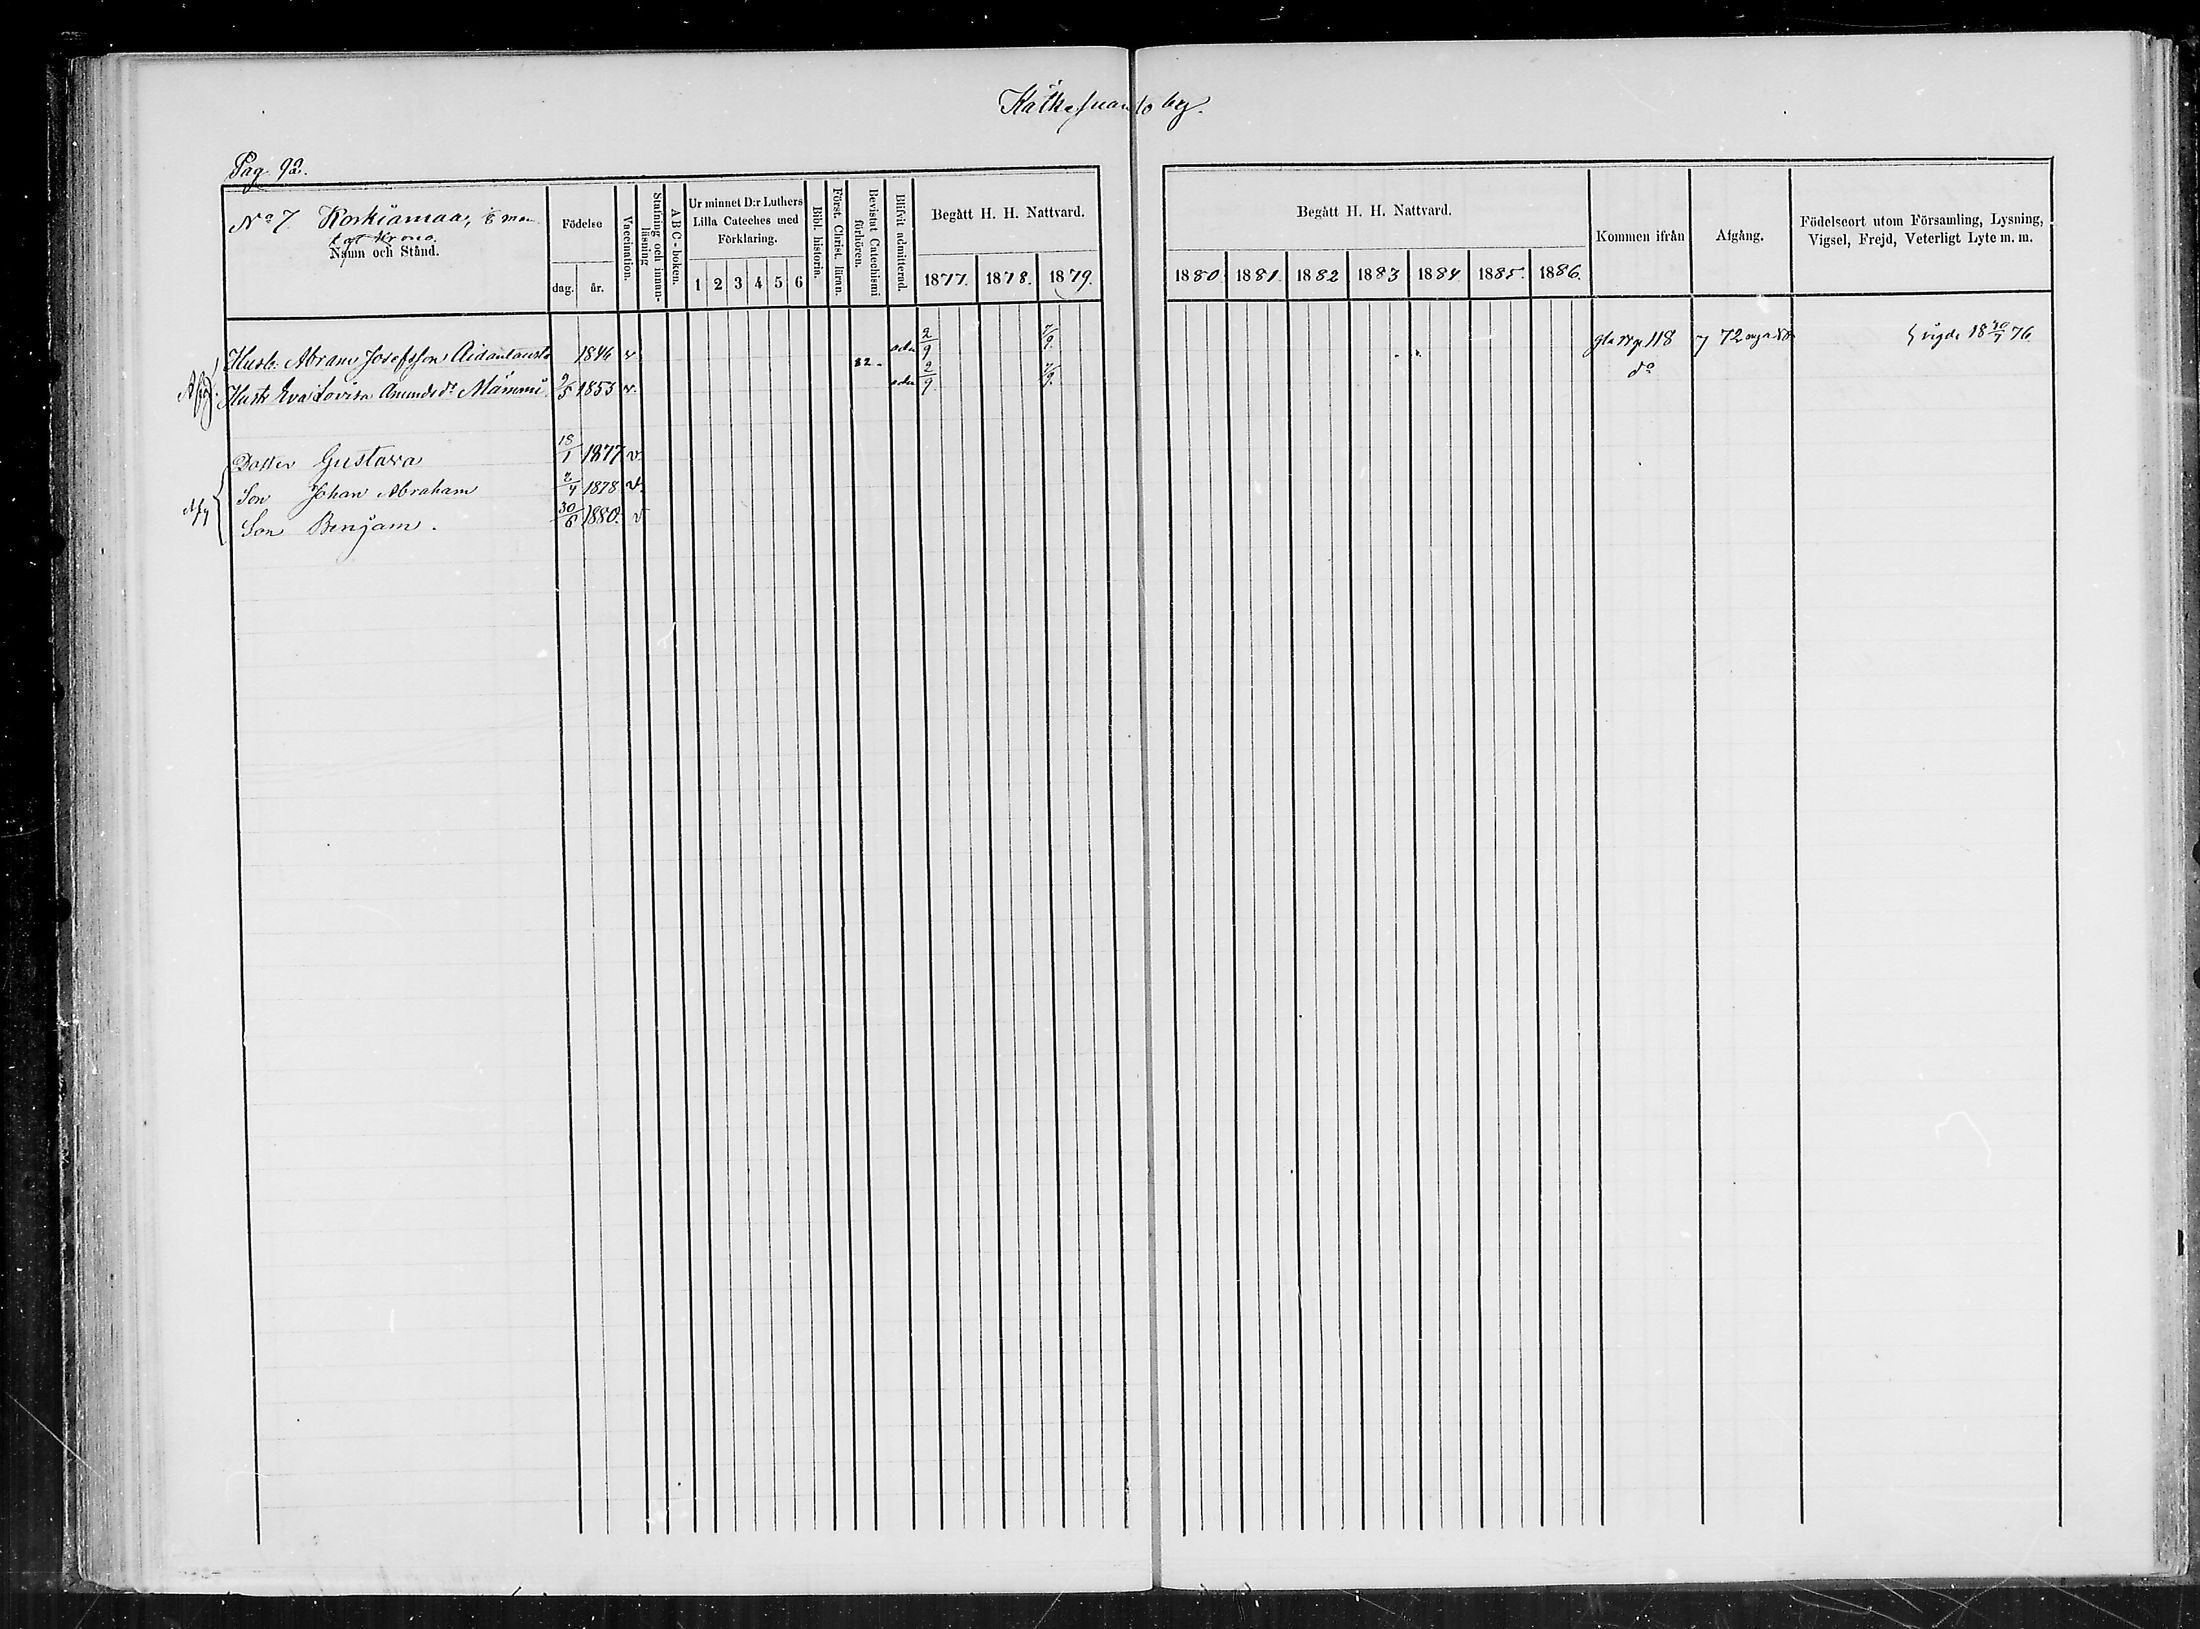 Kätkesuando by.
Pag. 92.
No 7. Korkiamaa,
Namn och Stånd.
Födelse
dag. år.
Vaccination.
Stafning och innanläsning
ABC-boken.
Ur minnet D:r Luthers Lilla Cateches med Förklaring.
1 2 3 4 5 6
Bibl. historia.
Först. Christ. läran.
Bevistat Catechismi förhören.
Blifvit admitterad.
Begått H. H. Nattvard.
1877. 1878. 1879.
Begått H. H. Nattvard.
1880. 1881. 1882 1883 1884. 1885. 1886.
Kommen ifrån
Afgång.
Födelseort utom Församling, Lysning, Vigsel, Frejd, Veterligt Lyte m. m.
Husb. Abram Josefsson 1846 v. 82. 2/9 118 72 vigde 18 30/7 76
Hustr Eva Lovisa Amundsdr Mämmi 9/5 1853 v. 2/9 do
Dotter Gustava 18/1 1877 v.
Son Johan Abraham 2/4 1878 v.
Son Benjam. 30/6 1880. v
Afg